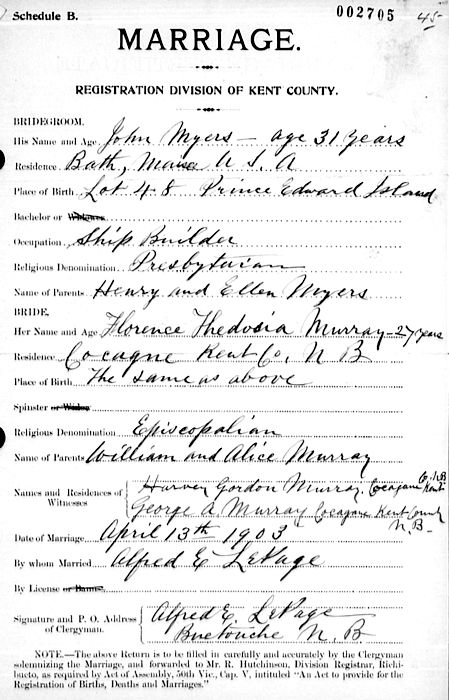 Schedule B.
002705 45
MARRIAGE.
REGISTRATION DIVISION OF KENT COUNTY.
BRIDEGROOM.
His Name and Age John Myers — age 31 years
Residence Bath, Maine U S A
Place of Birth Lot 48 Prince Edward Island
Bachelor or Widower
Occupation Ship Builder
Religious Denomination Presbyterian
Name of Parents Henry and Ellen Myers
BRIDE.
Her Name and Age Florence Thedosia Murray - 27 years
Residence Cocagne Kent Co, N B
Place of Birth The same as above
Spinster or Widow
Religious Denomination Episcopalian
Name of Parents William and Alice Murray
Names and Residences of Witnesses
Harvey Gordon Murray, Cocagne Kent Co. NB
George A Murray Cocagne Kent County N.B.
Date of Marriage April 13th 1903
By whom Married Alfred E LePage
By License or Banns
Signature and P. O. Address of Clergyman.
Alfred E. LePage
Buctouche N. B
NOTE.—The above Return is to be filled in carefully and accurately by the Clergyman
solemnizing the Marriage, and forwarded to Mr. R. Hutchinson, Division Registrar, Richi-
bucto, as required by Act of Assembly, 50th Vic., Cap. V, intituled "An Act to provide for the
Registration of Births, Deaths and Marriages."